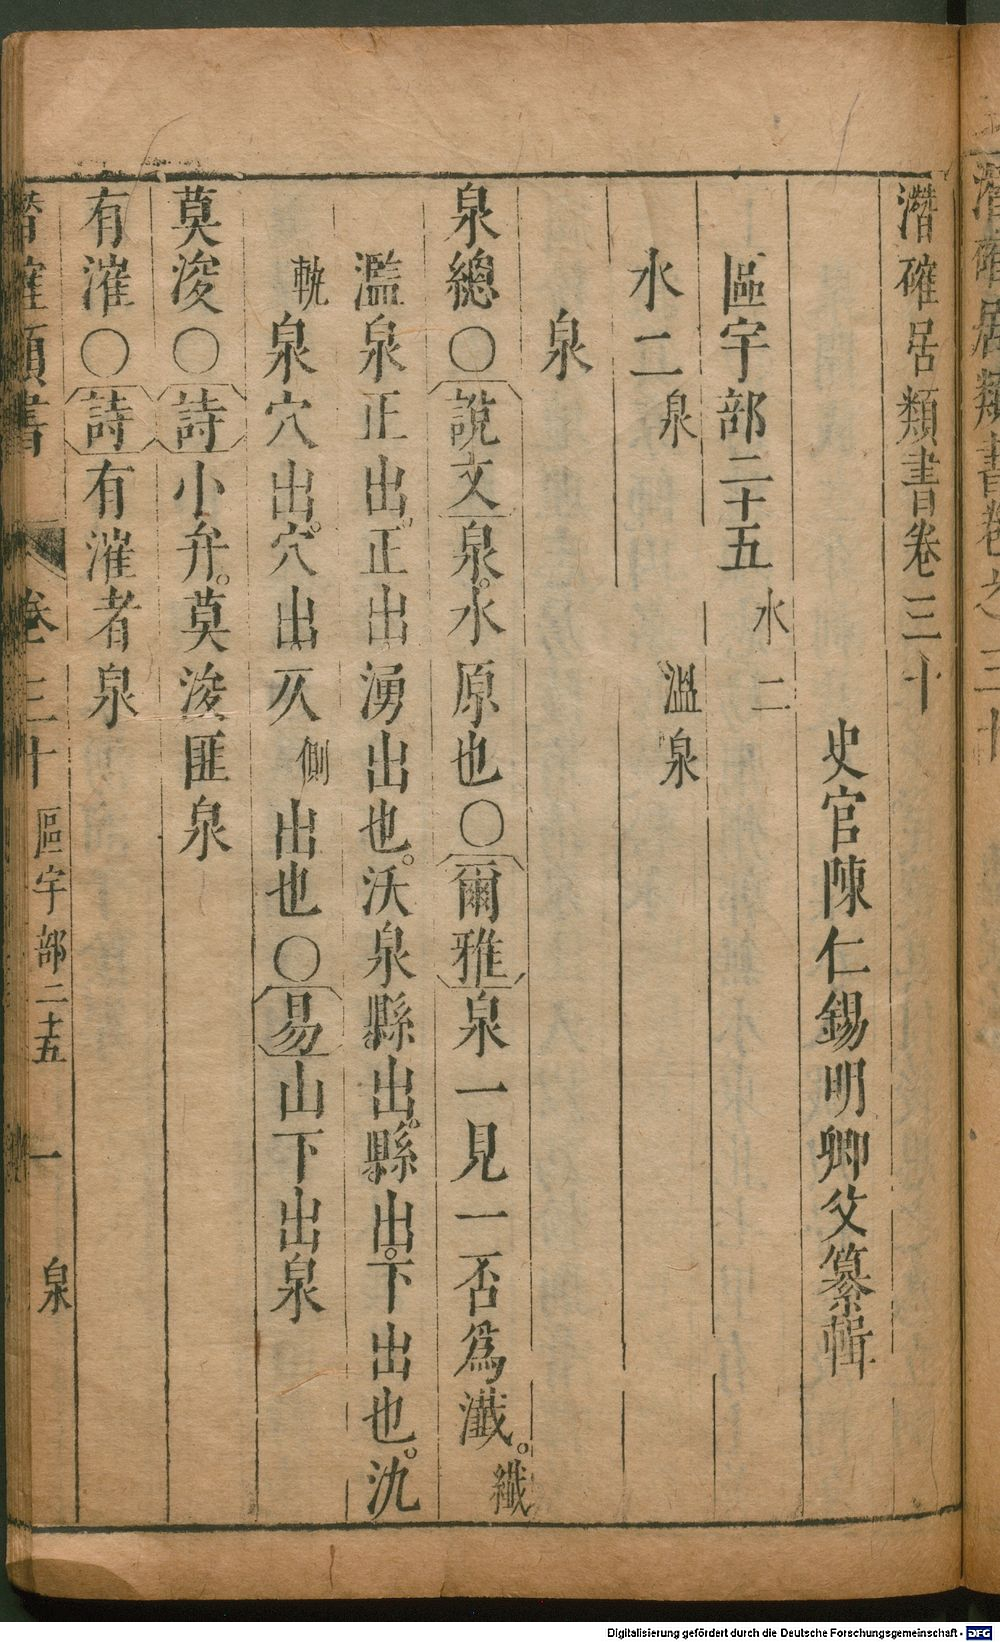 潛確居類書卷三十
史官陳仁錫明卿父纂輯
區宇部二十五 水二
水二 泉 溫泉
泉
泉總〇說文泉。水原也〇爾雅泉一見一否爲瀸。纖
濫泉正出。正出。湧出也。沃泉縣出。縣出。下出也。氿
軌泉穴出。穴出。仄側出也〇易山下出泉
莫浚〇詩小弁。莫浚匪泉
有漼〇詩有漼者泉
潛確類書 卷三十 區宇部二十五 一 泉
Digitalisierung gefördert durch die Deutsche Forschungsgemeinschaft - DFG